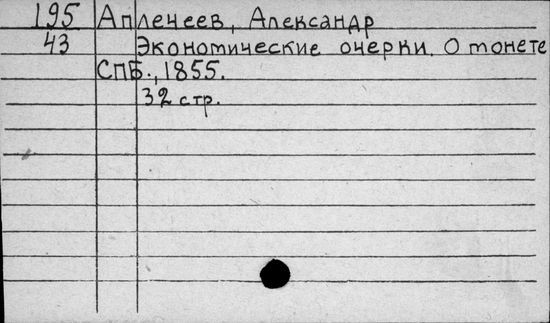 195 Апленеев, Александр
43 Экономические очерки. О монете
СПБ., 1855.
32 стр.